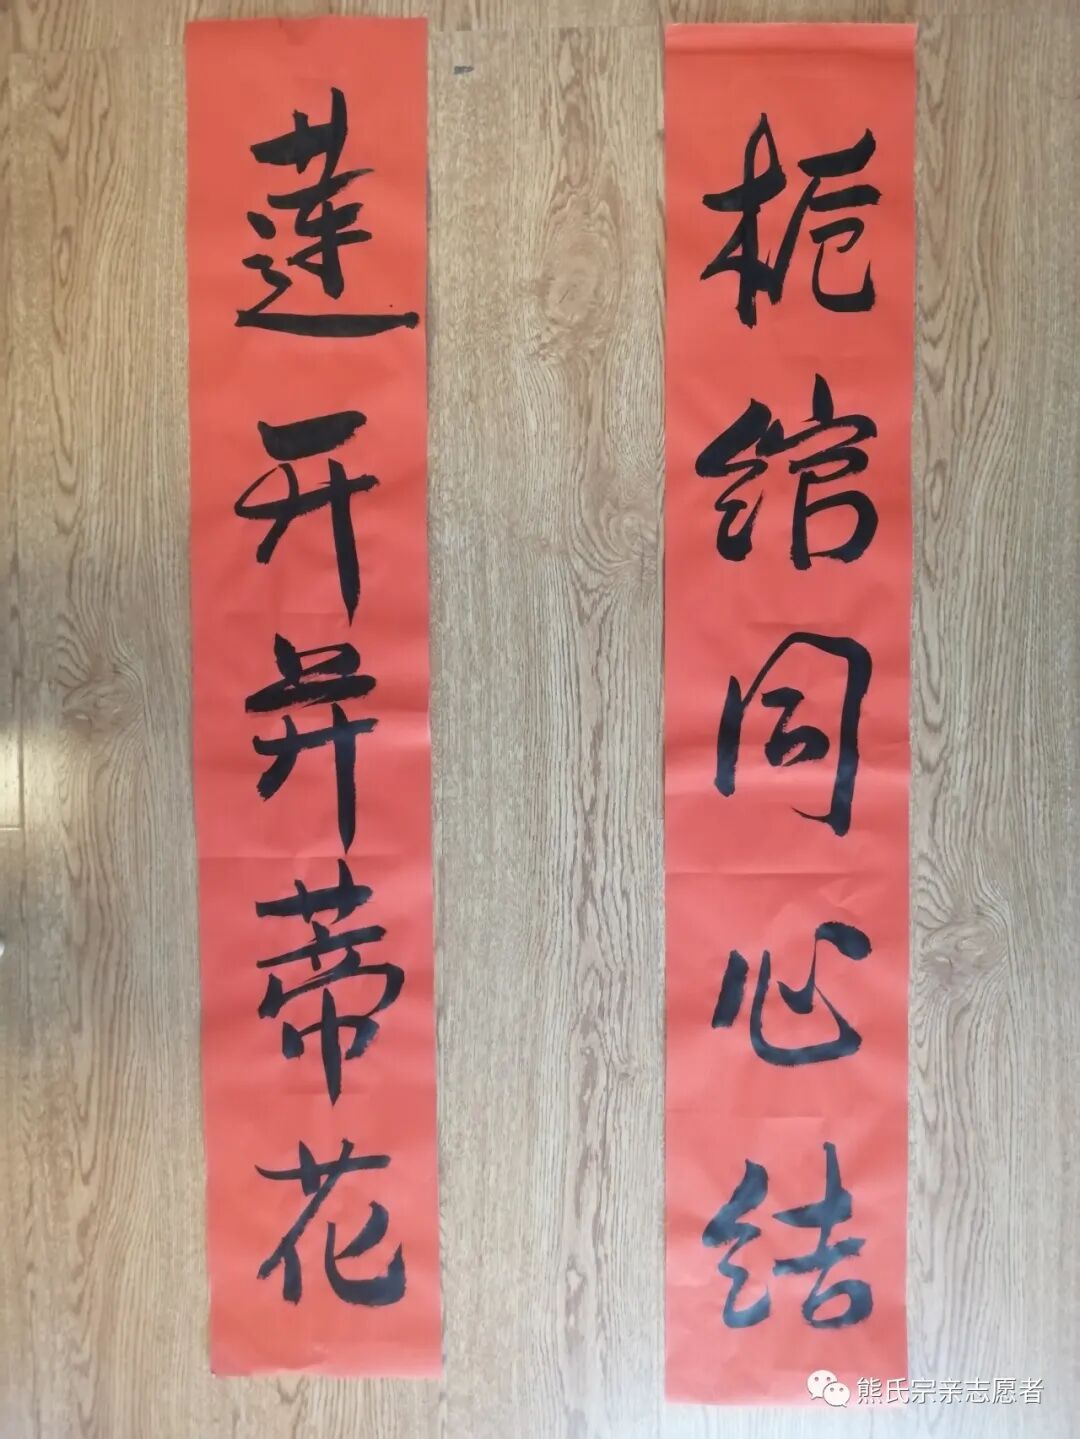 栀绾同心结
莲开并蒂花
熊氏宗亲志愿者